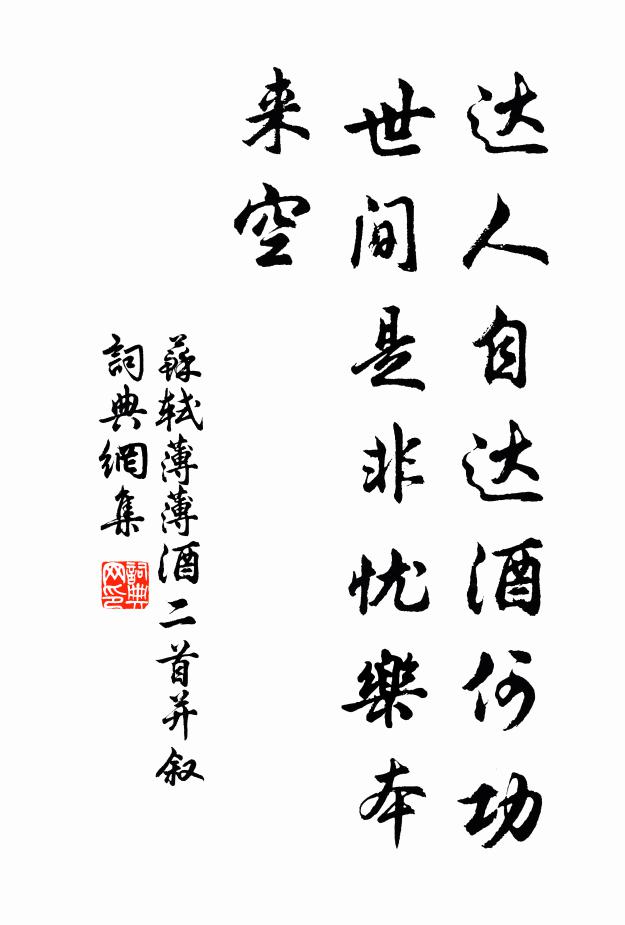 达人自达酒何功
世间是非忧樂本
来空
蘇轼薄薄酒二首并叙
詞典網集
詞典网印